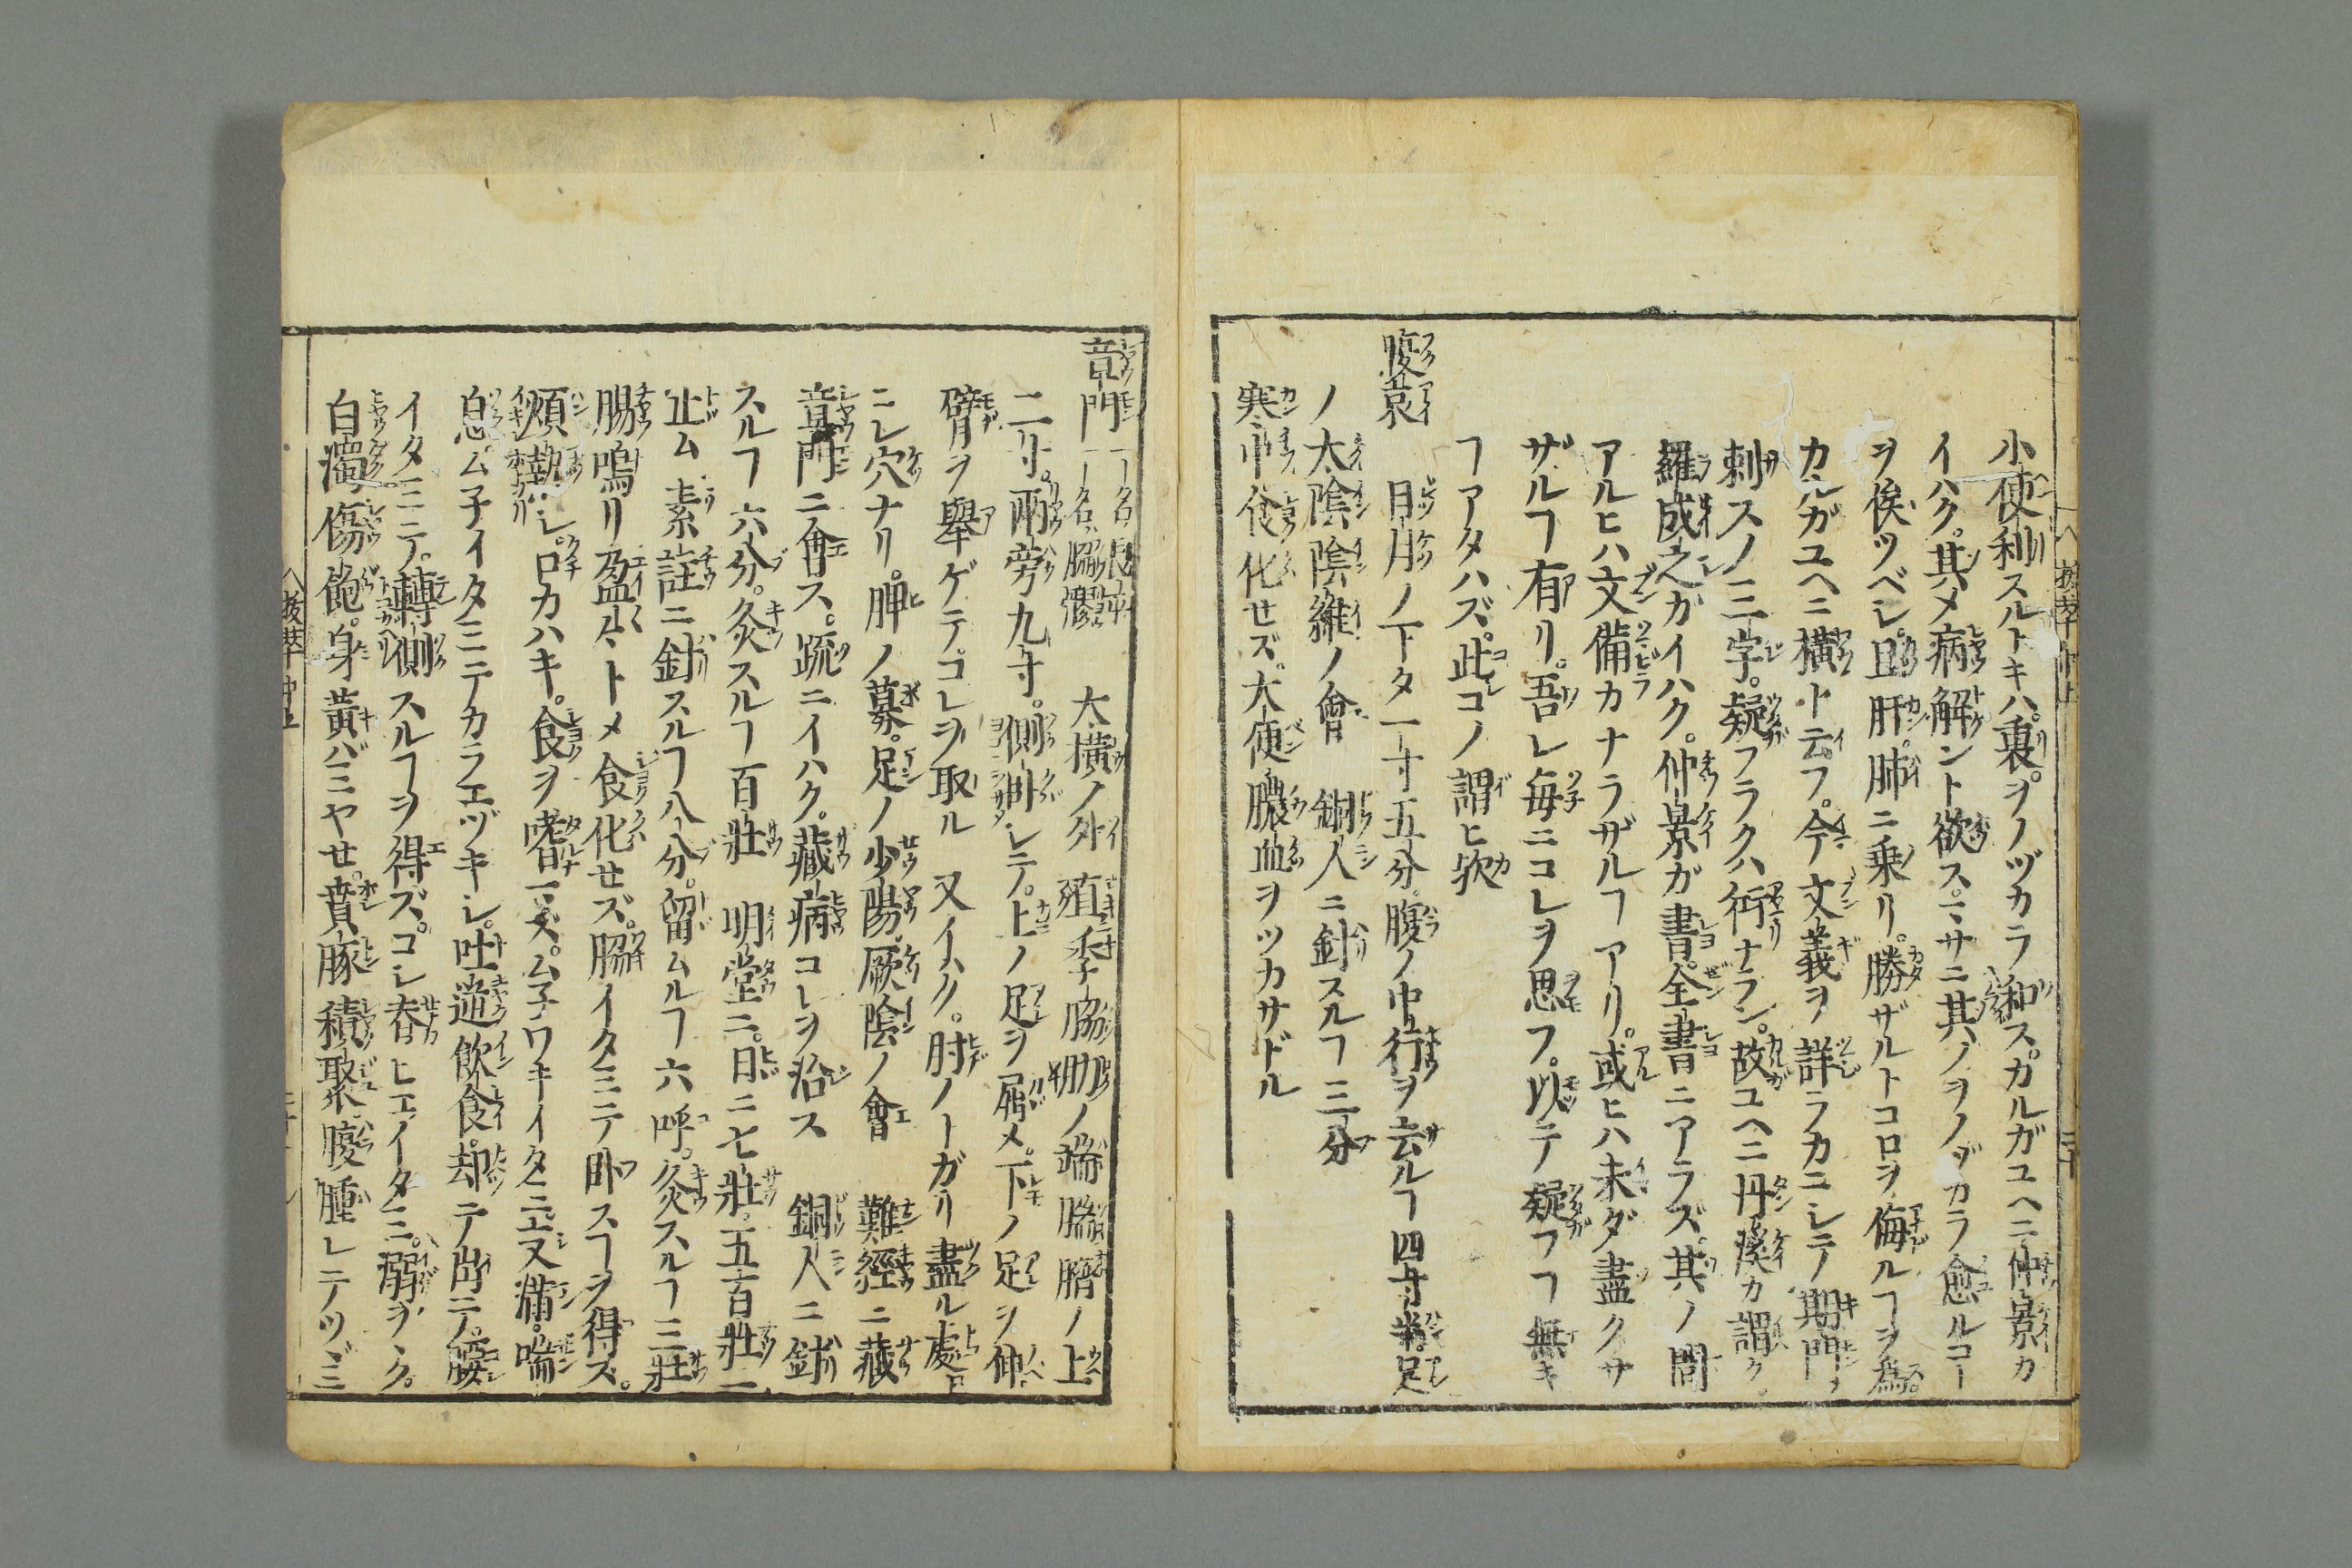 小便利スルトキハ裏ヲノヅカラ和ス。カルガユヘニ仲景カ
イハク。其メ病解ント欲ス。マサニ其ノヲノヅカラ愈ルヿ
ヲ俟ツベシ。且肝。肺ニ乗リ。勝ザルトコロヲ侮ルヿヲ為
カルガユヘニ横ト云フ。今文義ヲ詳ラカニシテ期門ノ
刺スノ三字。疑フラクハ衍ナラン。故ユヘニ丹溪カ謂ク
羅成之ガイハク。仲景ガ書。全書ニアラズ。其ノ間
アルヒハ文備カナラザルヿアリ。或ヒハ未ダ盡クサ
ザルヿ有リ。吾レ毎ニコレヲ思フ。以テ疑フヿ無キ
ヿアタハズ。此コノ謂ヒ欤
腹哀 日月ノ下タ一寸五分。腹ノ中行ヲ去ルヿ四寸半。足
ノ太陰陰維ノ會 銅人ニ針スルヿ三分
寒中食化セズ。大便膿血ヲツカサドル
章門 一名長平一名脇髎 大横ノ外 殖季脇肋ノ端臍ノ上
二寸。兩旁九寸。側臥シテ。上ノ足ヲ屈メ。下ノ足ヲ伸
臂ヲ舉ゲテ。コレヲ取ル 又イハク。肘ノトガリ盡ル處
ニレ穴ナリ。脾ノ募。足ノ少陽。厥陰ノ會 難經ニ藏
章門ニ會ス。疏ニイハク。藏病コレヲ治ス 銅人ニ針
スルヿ六分。灸スルヿ百壯 明堂ニ。日ニ七壯。五百壯ニ
止ム 素註ニ針スルヿ八分。留ムルヿ六呼。灸スルヿ三壯
腸鳴リ盈盈トメ食化セズ。脇イタミテ臥スヿヲ得ズ。
煩熱シ。口カハキ。食ヲ嗜マズ。ムネワキイタミ。又滿。喘
息ムネイタミテカラエヅキシ。吐逆飲食。却テ出テ。腰
イタミテ。轉側スルヿヲ得ズ。コレ脊ヒエイタミ。溺ヲヽク。
白濁。傷飽。身黃バミヤセ。賁豚積聚腹腫レテツヾミ